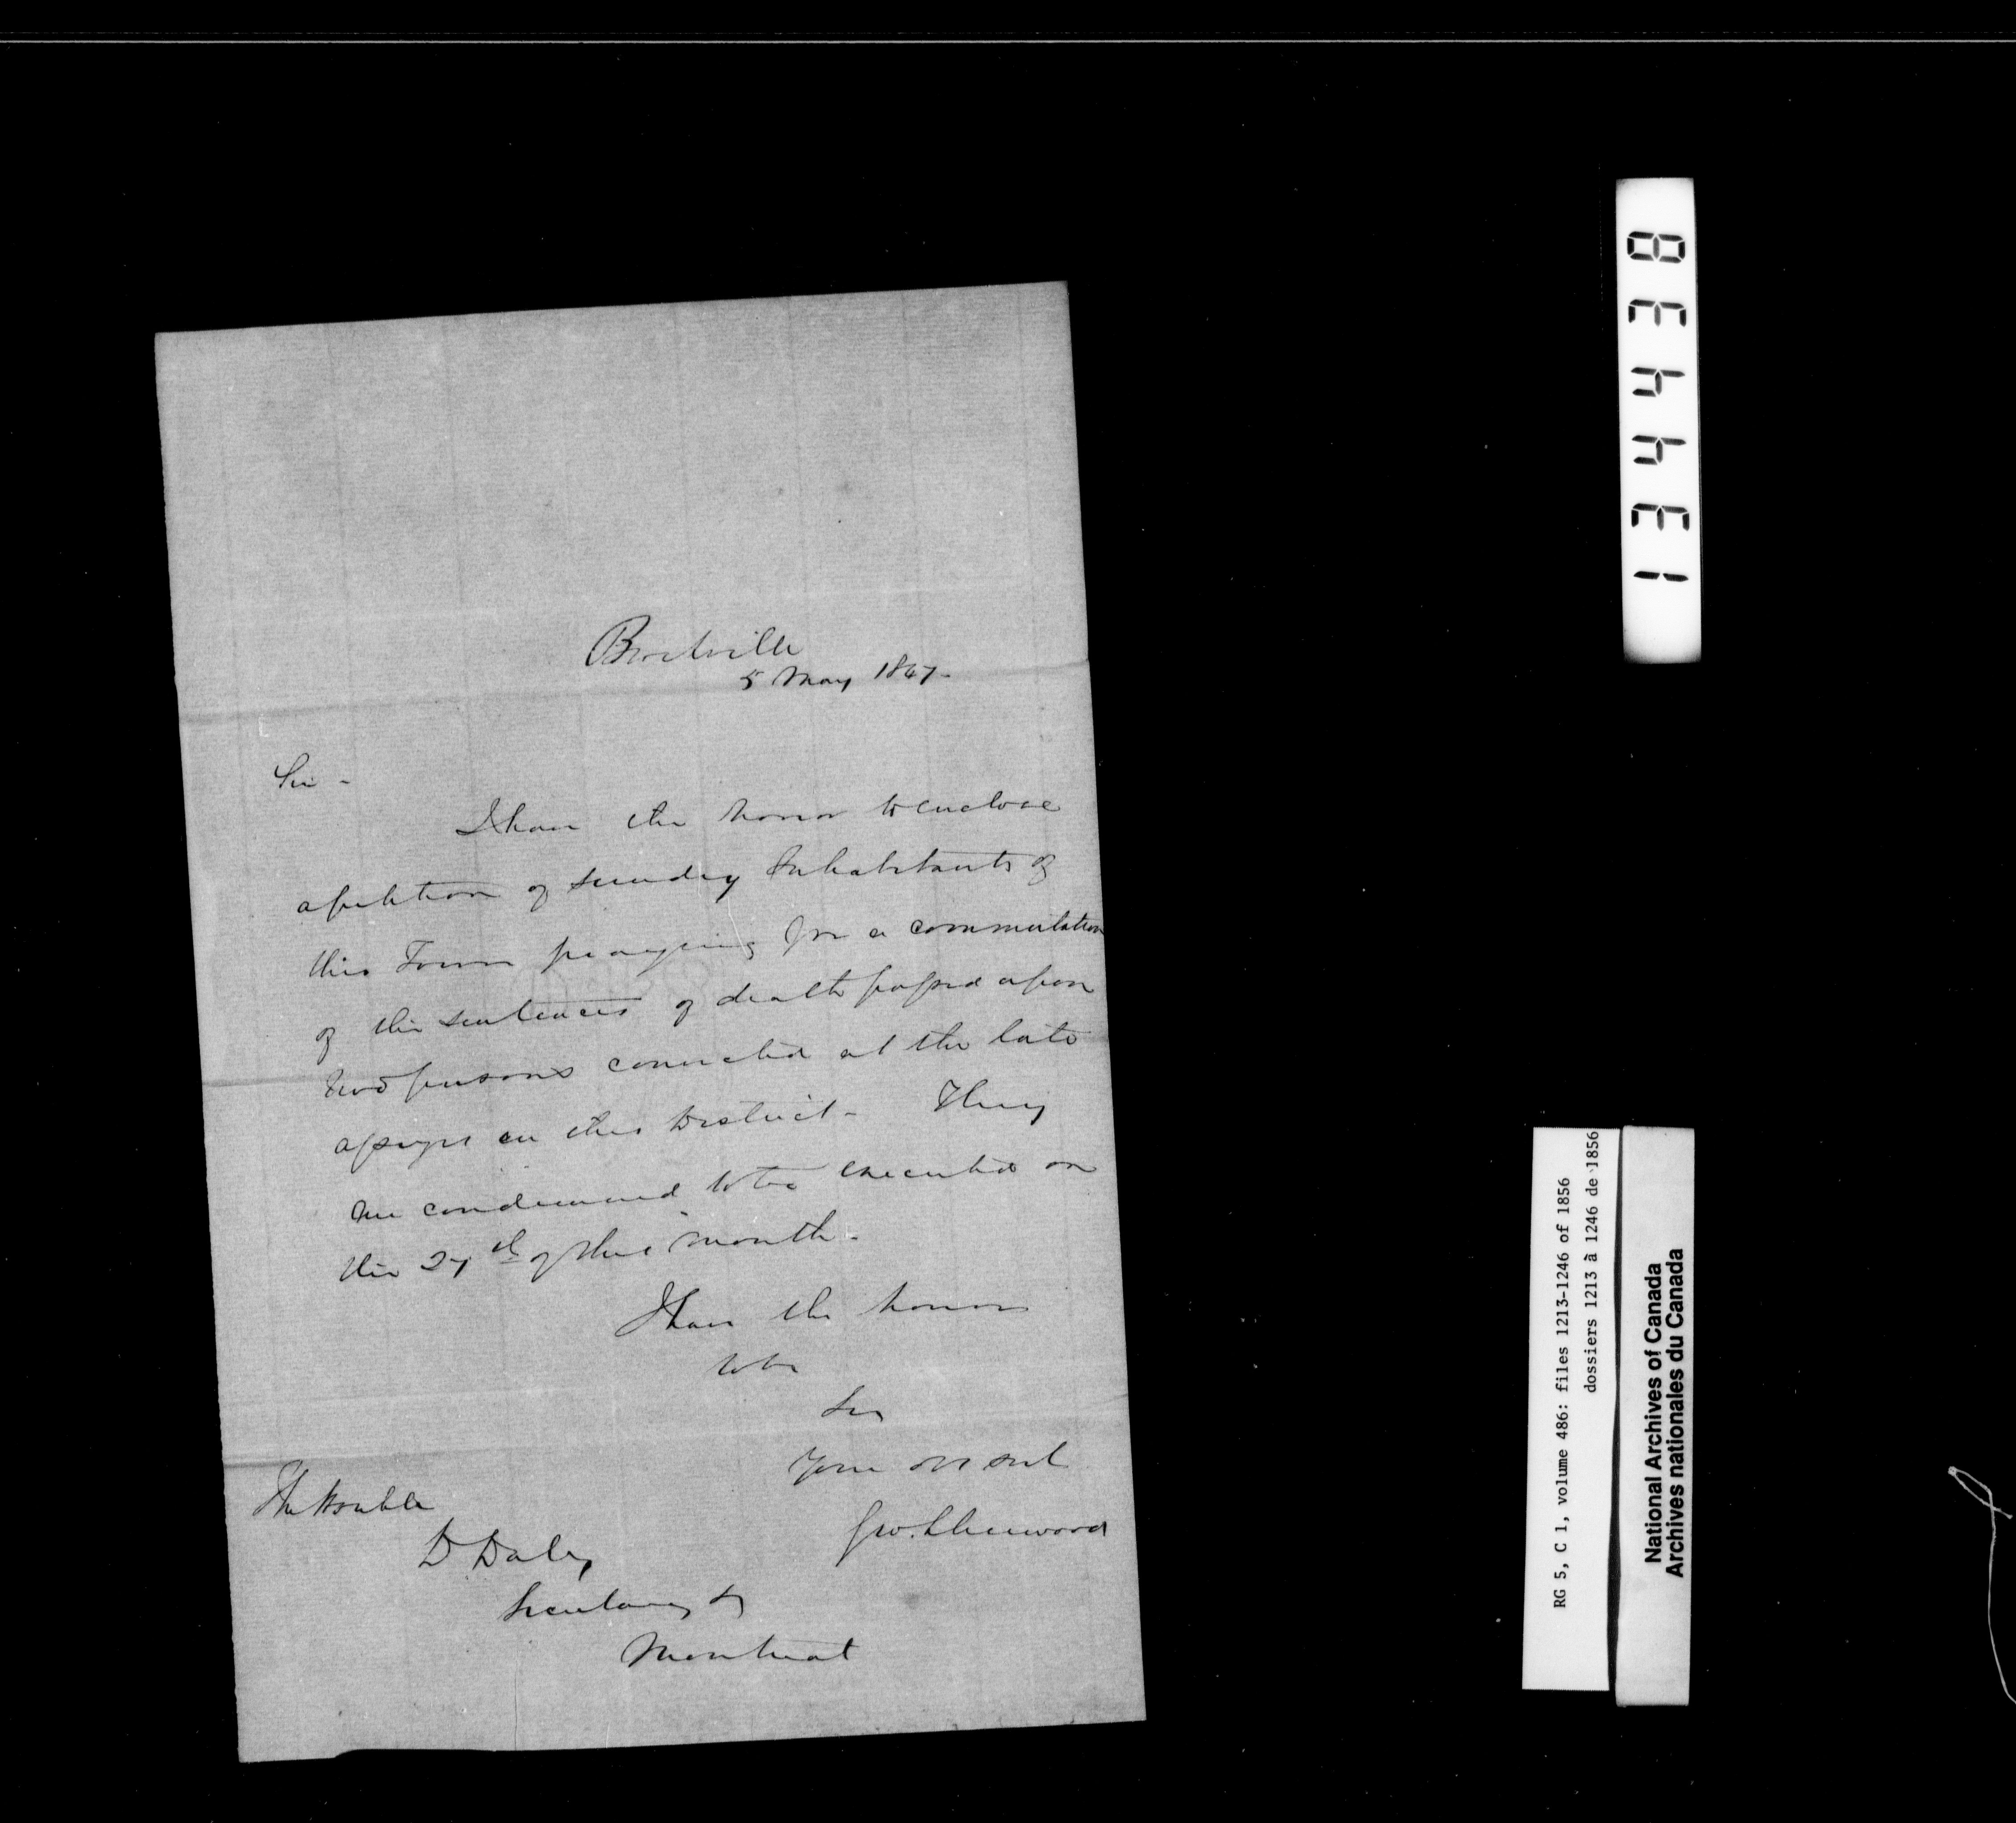 Brockville
5 May 1847-
Sir -
I have the honor to enclose
a petition of sundry Inhabitants of
this Town praying for a commutation
of the sentences of death passed upon
two persons convicted at the late
assizes in this District- They
are condemned to be executed on
the 27th of this month.
I have the honor
to be
Sir
Your ob svt
Geo. Sherwood
The Honble
D Daly
Secretary &
Montreal
134438
RG 5, C 1, volume 486: files 1213-1246 of 1856
dossiers 1213 à 1246 de 1856
National Archives of Canada
Archives nationales du Canada